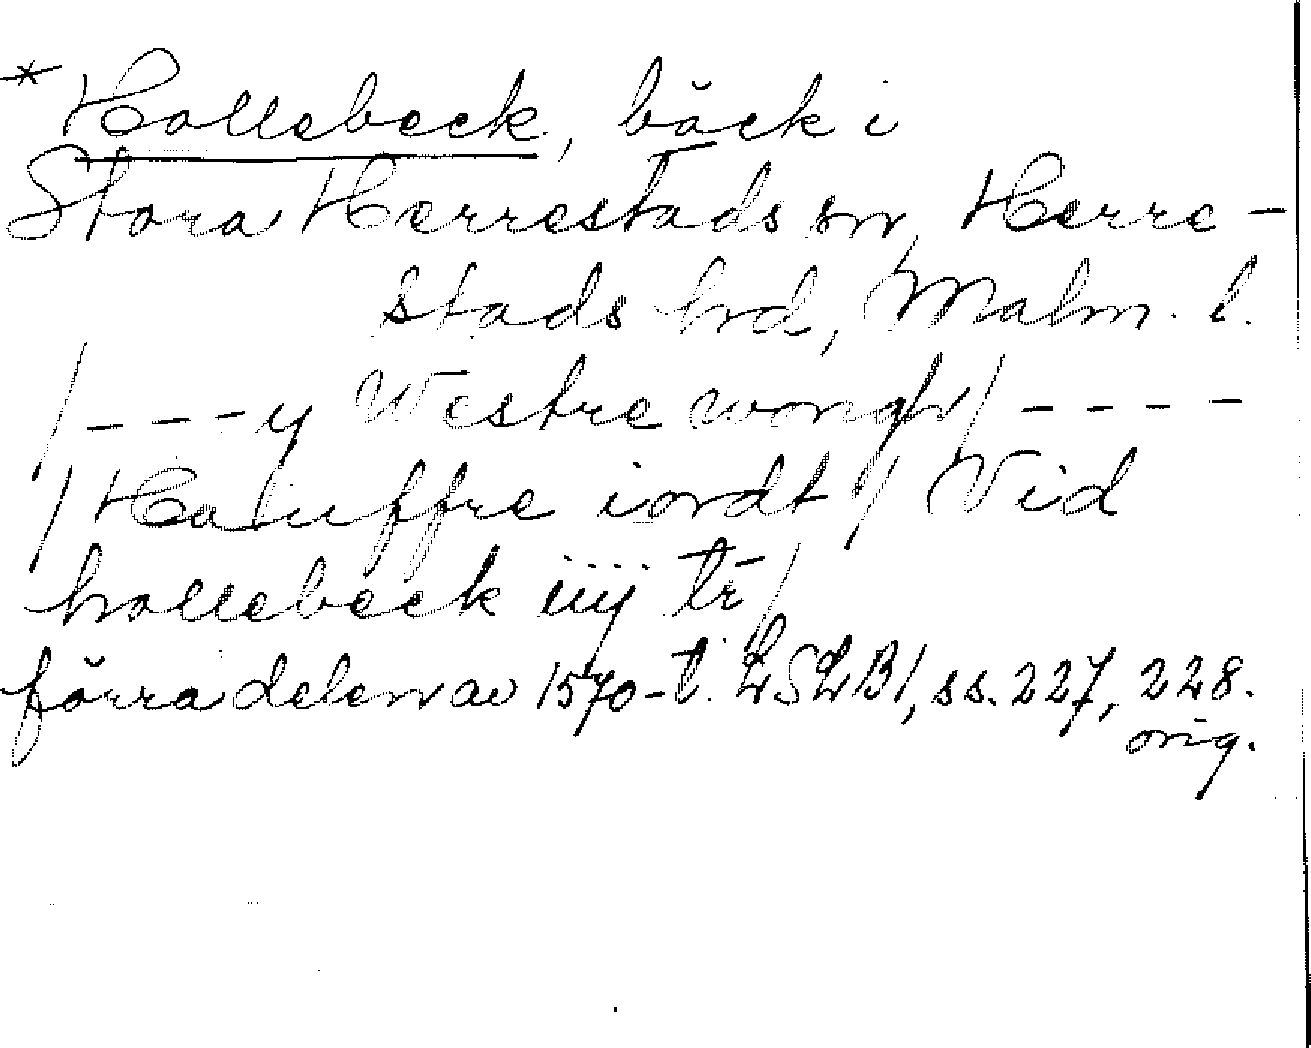 * Hollebeck, bäck i
Stora Herrestads sn, Herre-
stads hd, Malm. l.
/---y Westre wongh/----
/Haluffre iordt/ Vid
hollebeck iiij tr̄/
förra delen av 1570-t. LSLB1, ss. 227, 228.
orig.